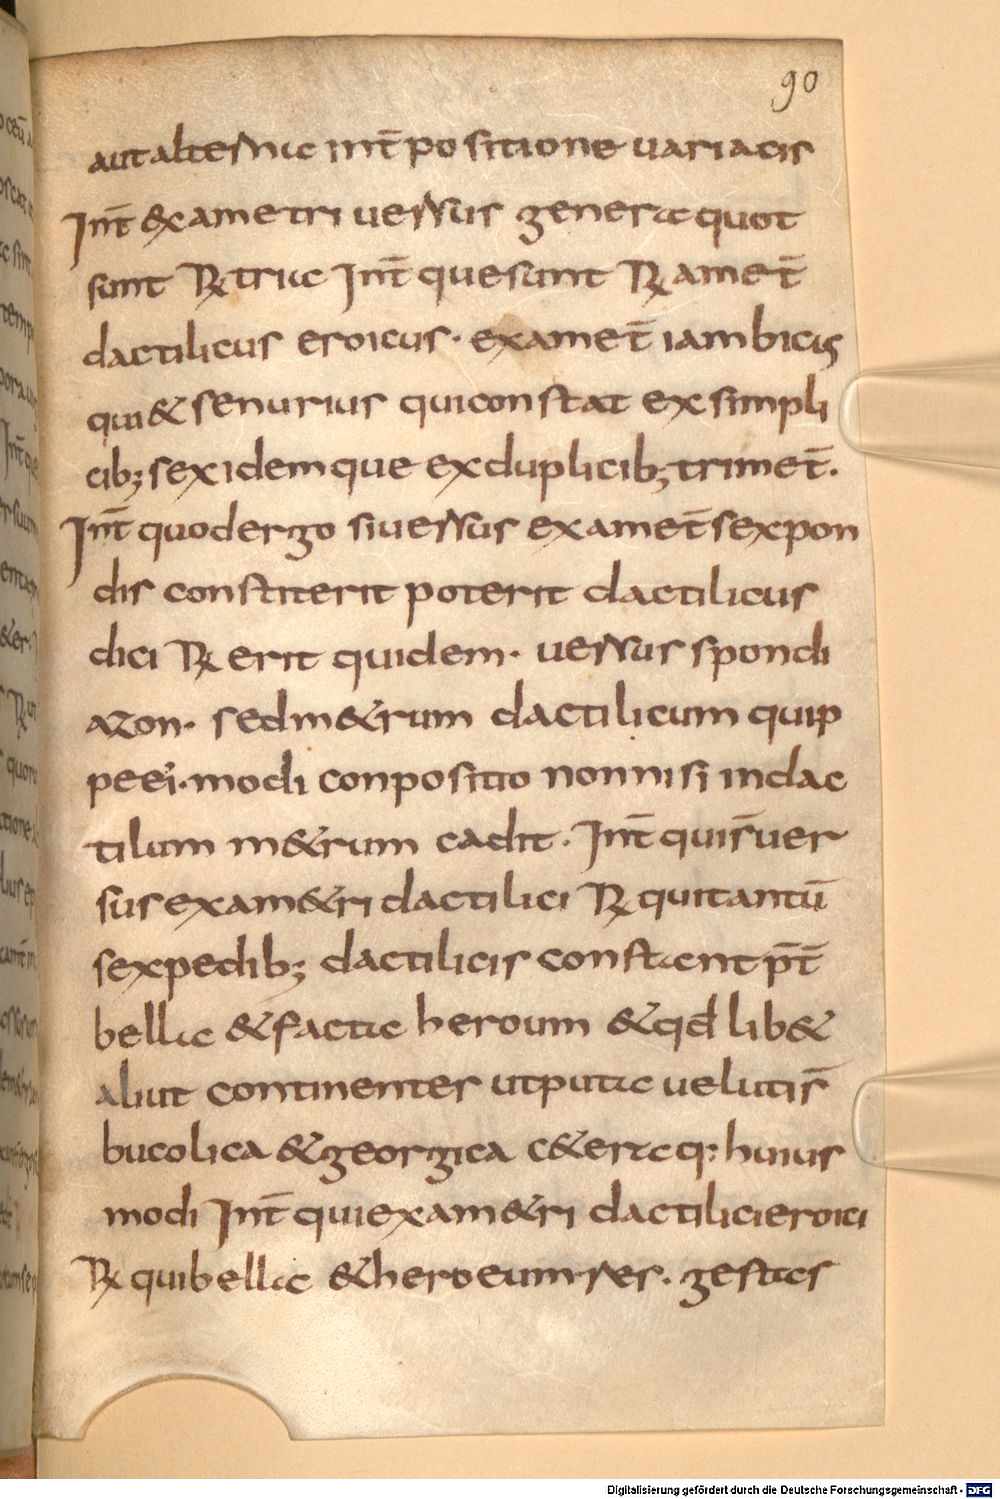 90
aut alterna int̄positione uariatis
Int̄ &xametri uersus genera quot
sunt R tria Int̄ que sunt R amet̄
dactilicus eroicus · examet̄ iambicus
qui & senurius qui constat ex simpli
cib; sex idemque ex duplicib; trimet̄.
Int̄ quod ergo si uersus examet̄ sex pon
dis constiterit poterit dactilicus
dici R erit quidem · uersus spondi
azon · sed m&rum dactilicum quip
pe ei · modi conpositio non nisi in dac
tilum m&rum cadit · Int̄ quis̄ uer
sus exam&ri dactilici R qui tantū
sex pedib; dactilicis constant p̄t̄
bella & facta heroum & qđ lib&
aliut continenter ut puta uelutis̄
bucolica & georgica c&eraq: huius
modi Int̄ qui exam&ri dactilici eroici
R qui bella & heroeum res · gestas
Digitalisierung gefördert durch die Deutsche Forschungsgemeinschaft - DFG